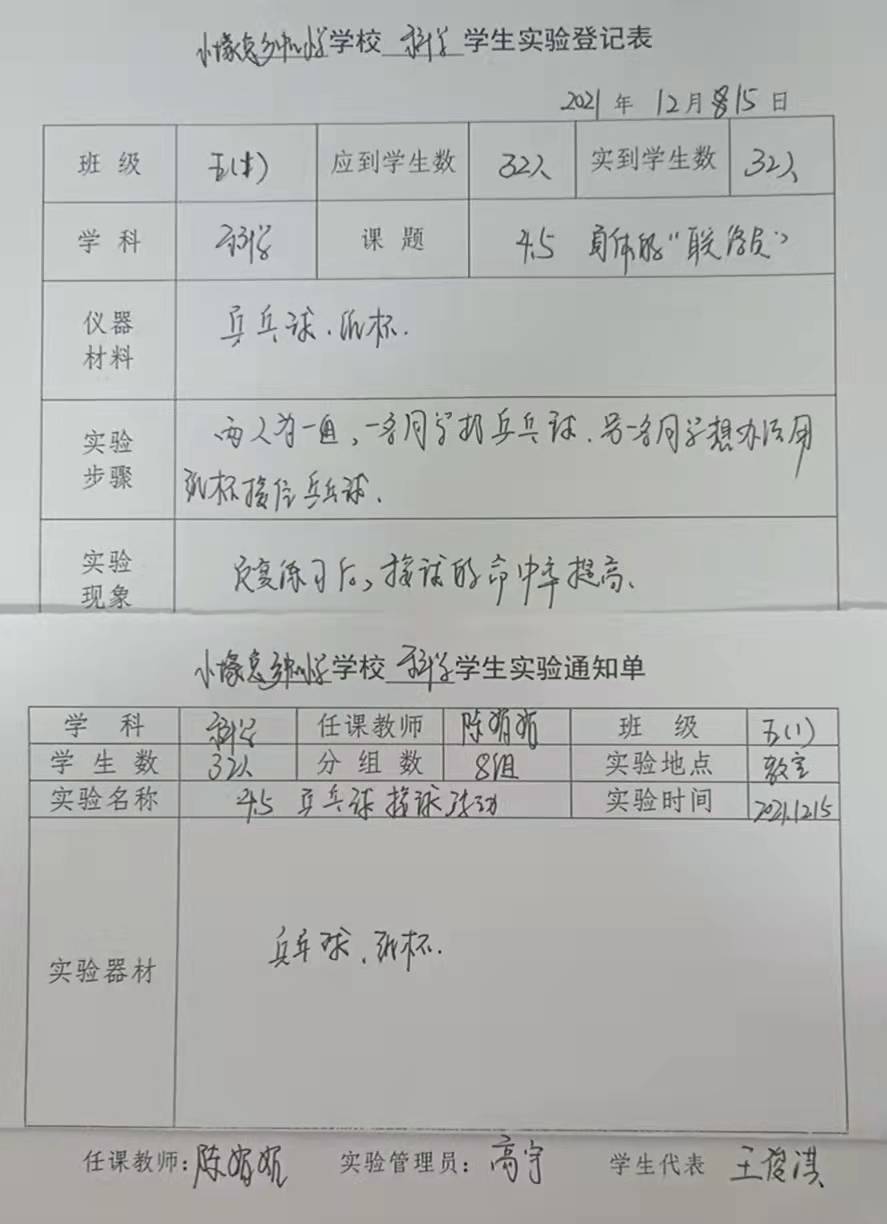 学校 科学 学生实验登记表
2021 年 12 月 15 日
班 级 五(1) 应到学生数 32人 实到学生数 32人
学 科 科学 课 题 4.5 身体的“联络员”
仪器 乒乓球、纸杯.
材料
实验 两人为一组,一名同学抛乒乓球.另一名同学想办法用
步骤 纸杯接住乒乓球.
实验 反复练习后,接球的命中率提高.
现象
学校 科学 学生实验通知单
学 科 科学 任课教师 陈娟娟 班 级 五(1)
学 生 数 32人 分 组 数 8组 实验地点 教室
实验名称 4.5 乒乓球接球活动 实验时间 2021.12.15
实验器材 乒乓球、纸杯.
任课教师:陈娟娟 实验管理员:高宇 学生代表 王俊淇